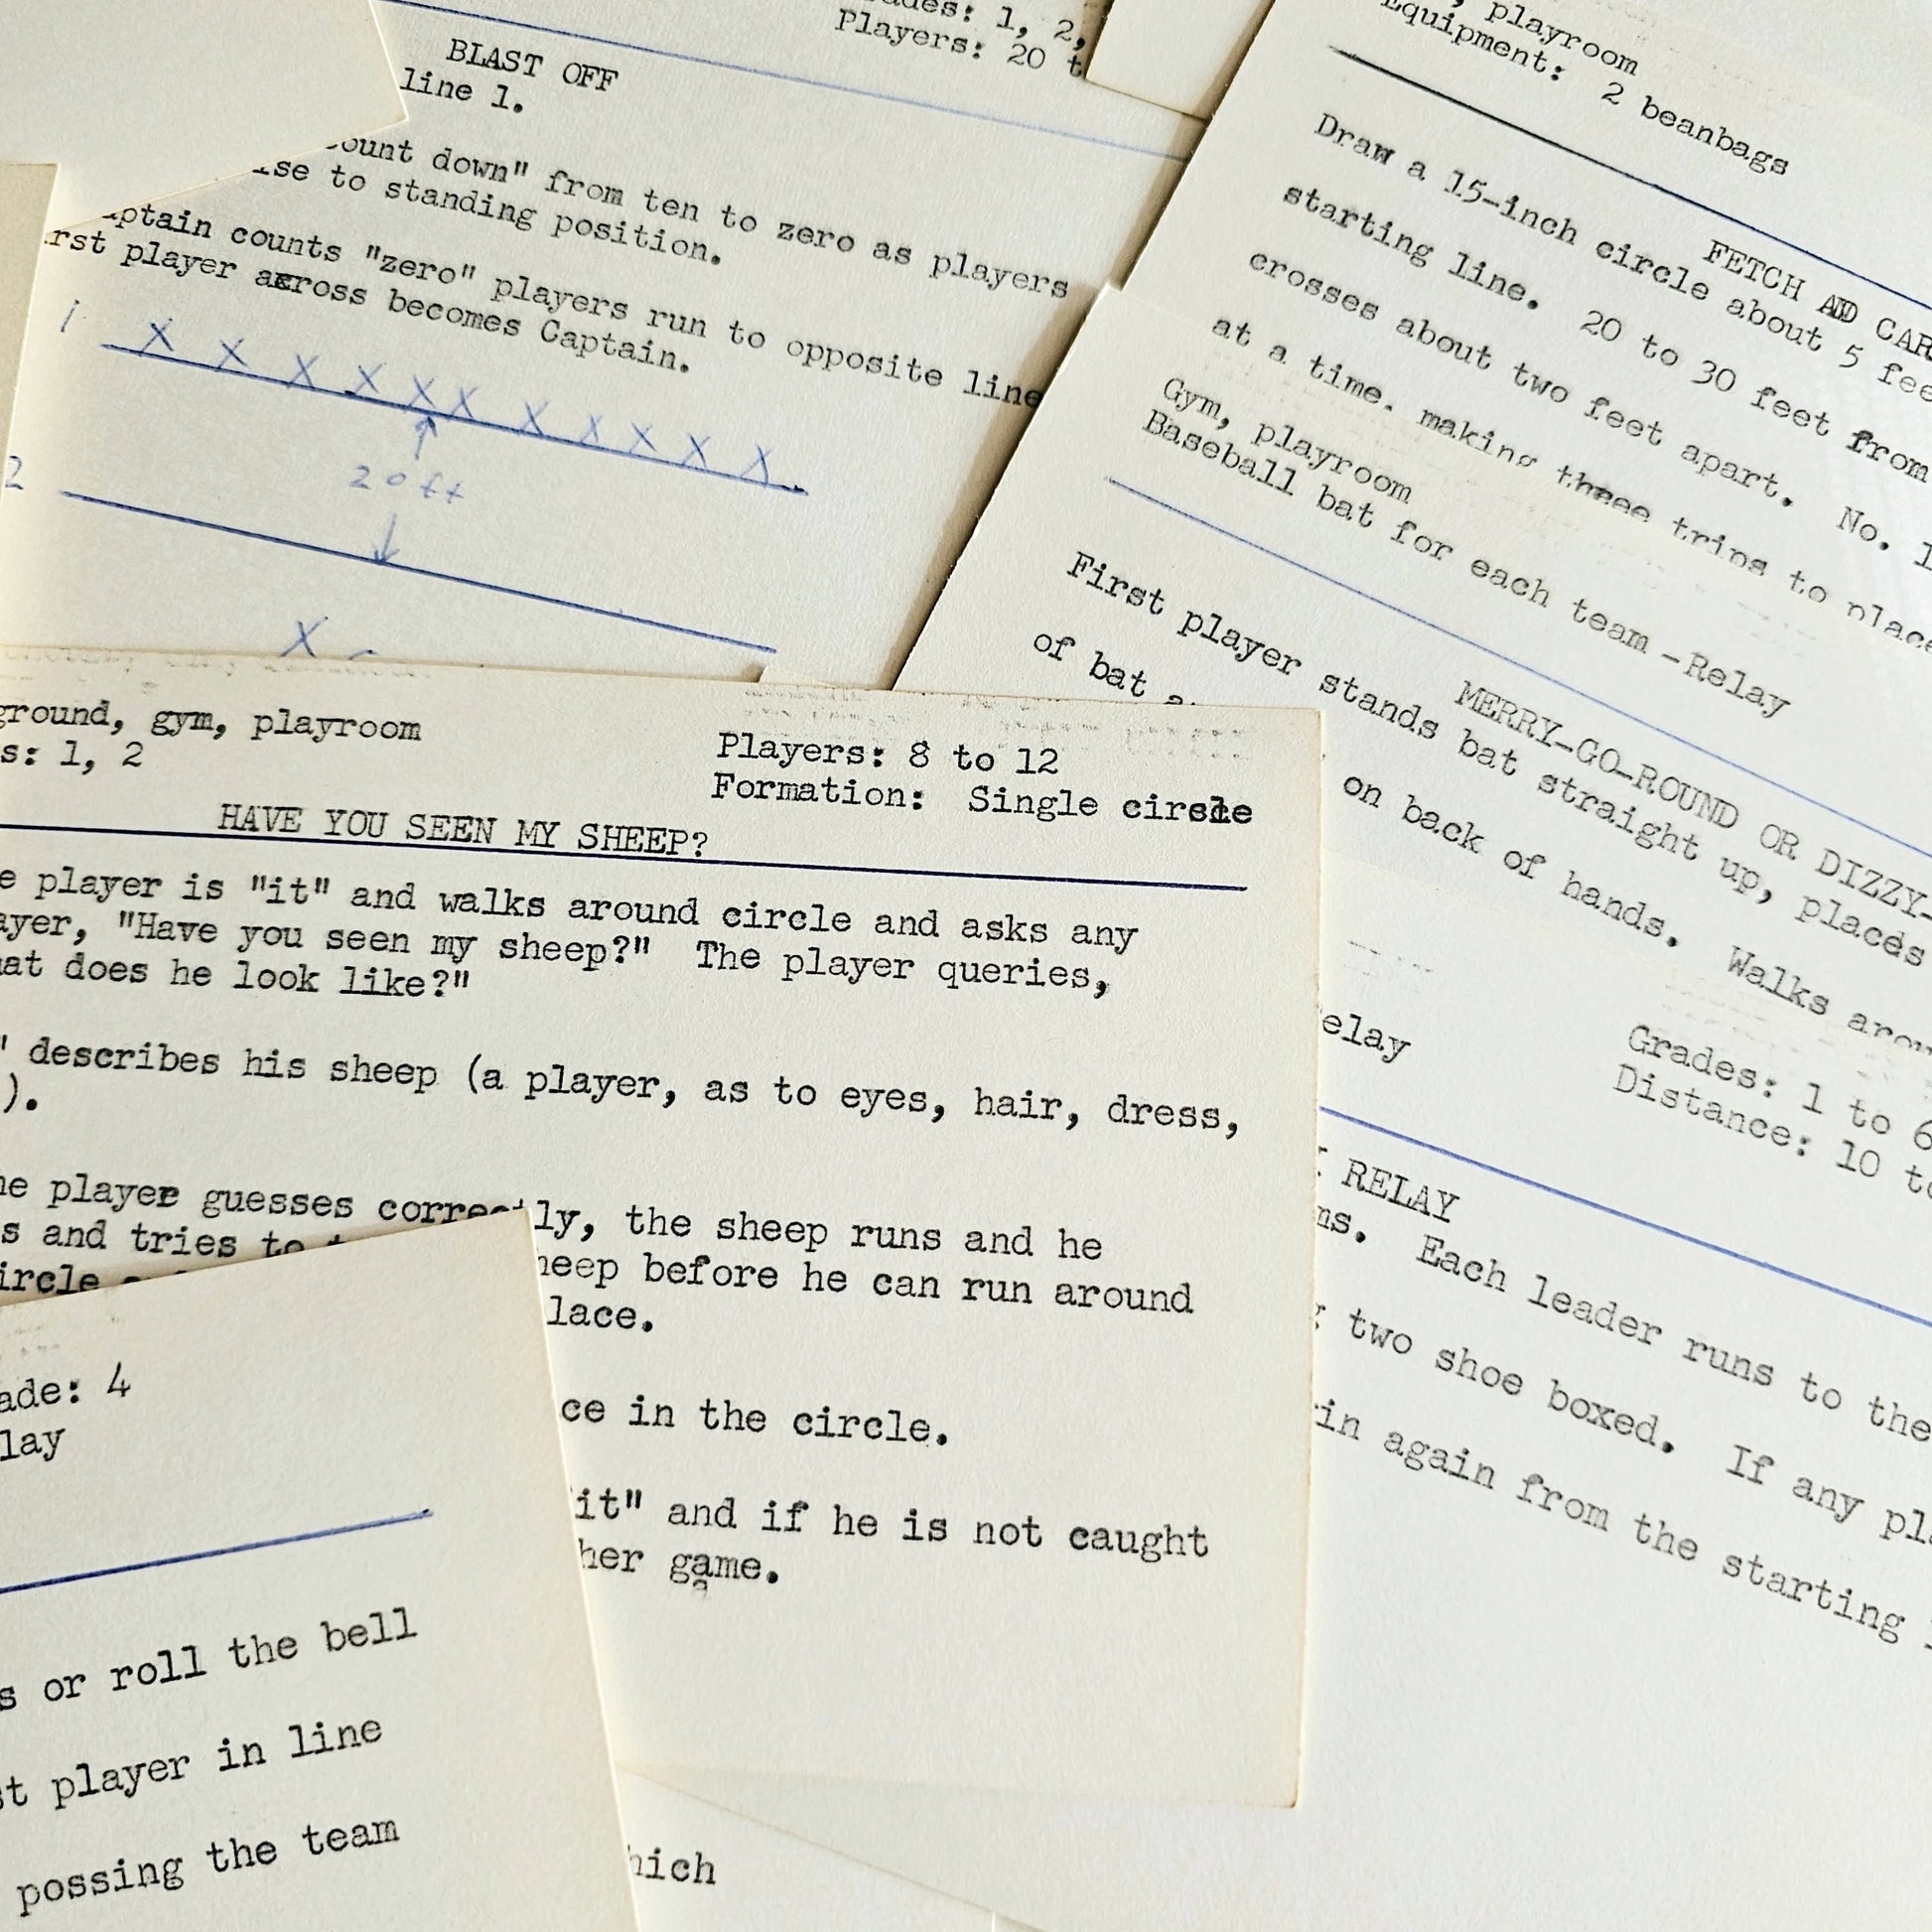 Players: 20
BLAST OFF
line 1.
count down" from ten to zero as players
to standing position.
counts "zero" players run to opposite line
player across becomes Captain.
1 X X X X X X X X X X X
20 ft
2
X
playroom
Equipment: 2 beanbags
FETCH AND
Draw a 15-inch circle about 5
starting line. 20 to 30 feet from
crosses about two feet apart. No. 1
at a time. making three trips to place
Gym, playroom
Baseball bat for each team -Relay
MERRY-GO-ROUND OR DIZZY-
First player stands bat straight up, places
of bat
on back of hands. Walks
Grades: 1 to 6
Distance: 10
RELAY
Each leader runs to the
two shoe boxed. If any
again from the starting
gym, playroom
1, 2
Players: 8 to 12
Formation: Single circle
HAVE YOU SEEN MY SHEEP?
player is "it" and walks around circle and asks any
"Have you seen my sheep?" The player queries,
does he look like?"
describes his sheep (a player, as to eyes, hair, dress,
).
player guesses correctly, the sheep runs and he
and tries to
before he can run around
in the circle.
it" and if he is not caught
game.
4
or roll the bell
player in line
possing the team